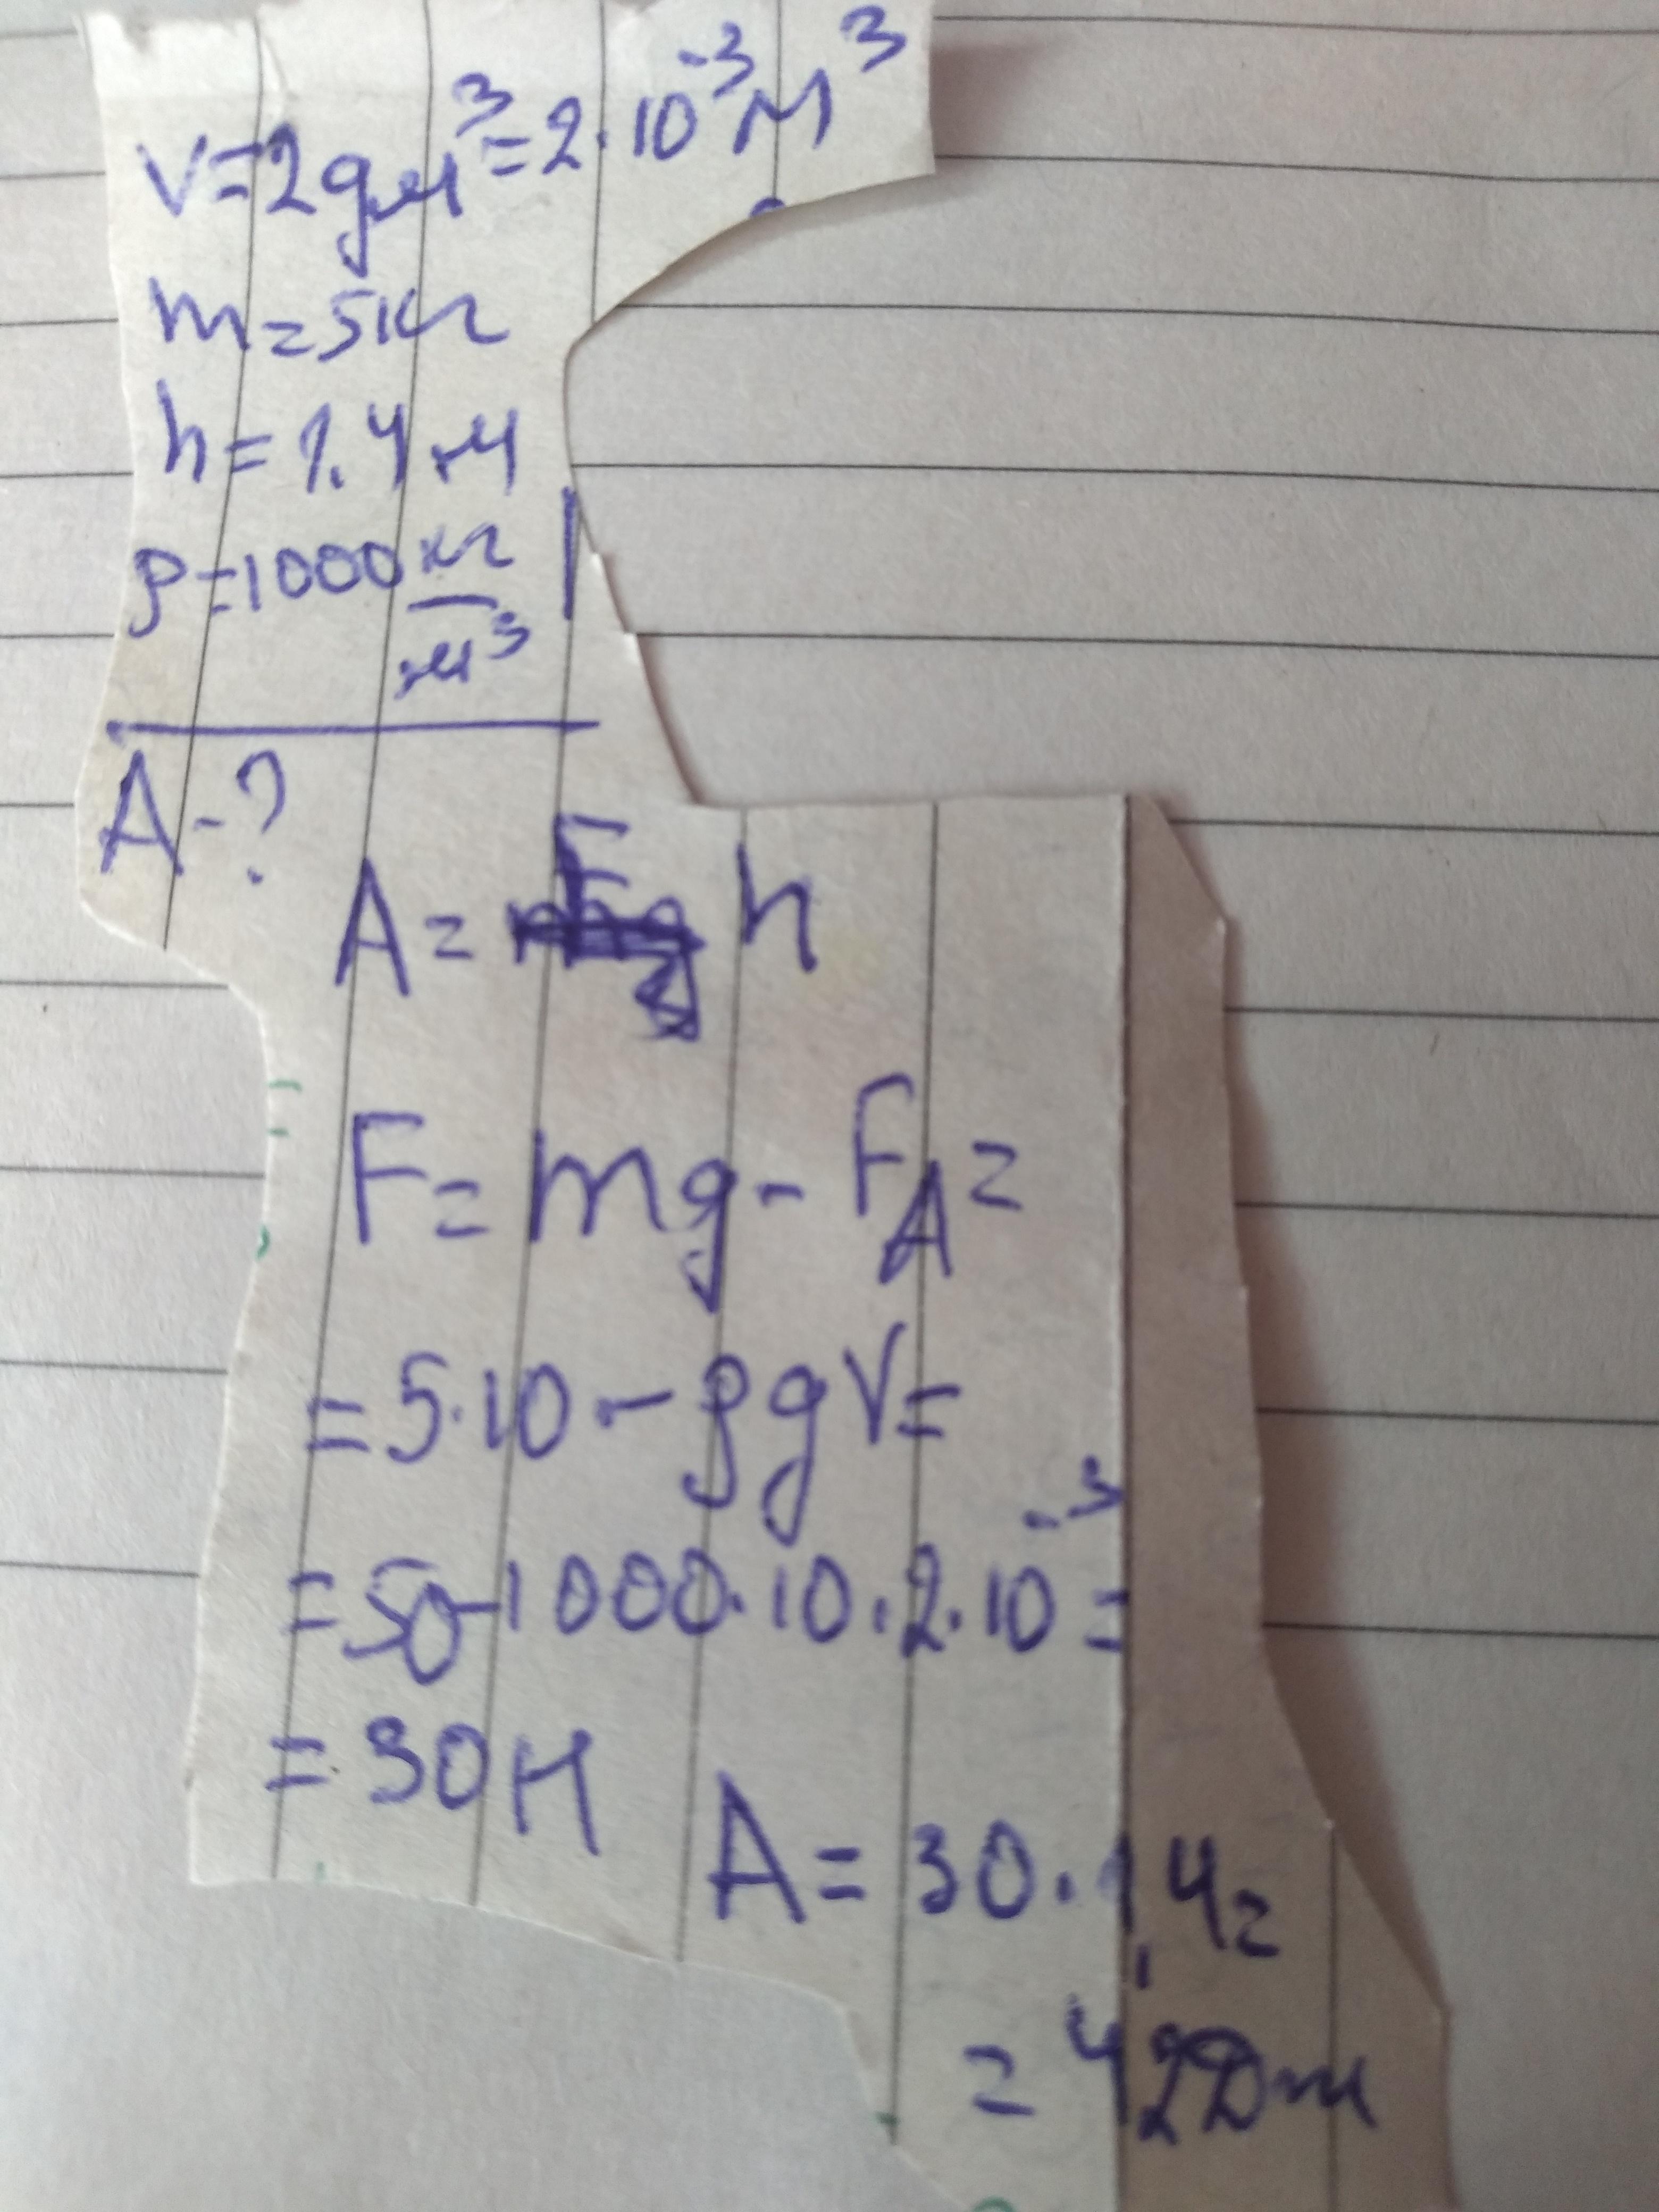 V=2дм³=2·10⁻³м³
m=5кг
h=1.4м
ρ=1000 кг/м³
A-?
A= F h
F=mg-F_A=
=5·10-ρgV=
=50-1000·10·2·10⁻³=
=30H
A=30·1,4=
=42Дж